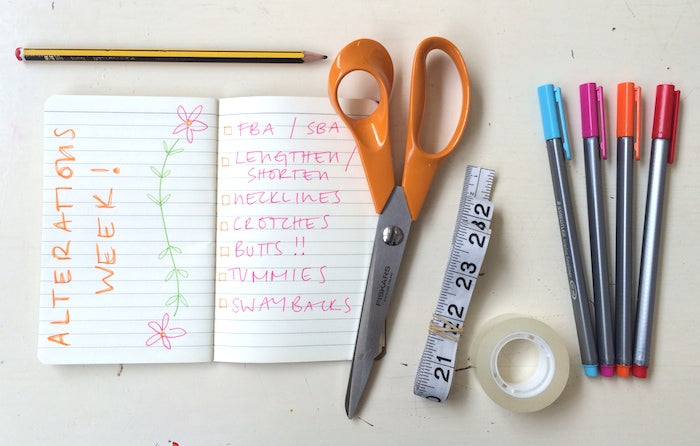 ALTERATIONS
WEEK!
FBA / SBA
LENGTHEN /
SHORTEN
NECKLINES
CROTCHES
BUTTS !!
TUMMIES
SWAYBACKS
FISKARS
21
22
23
24